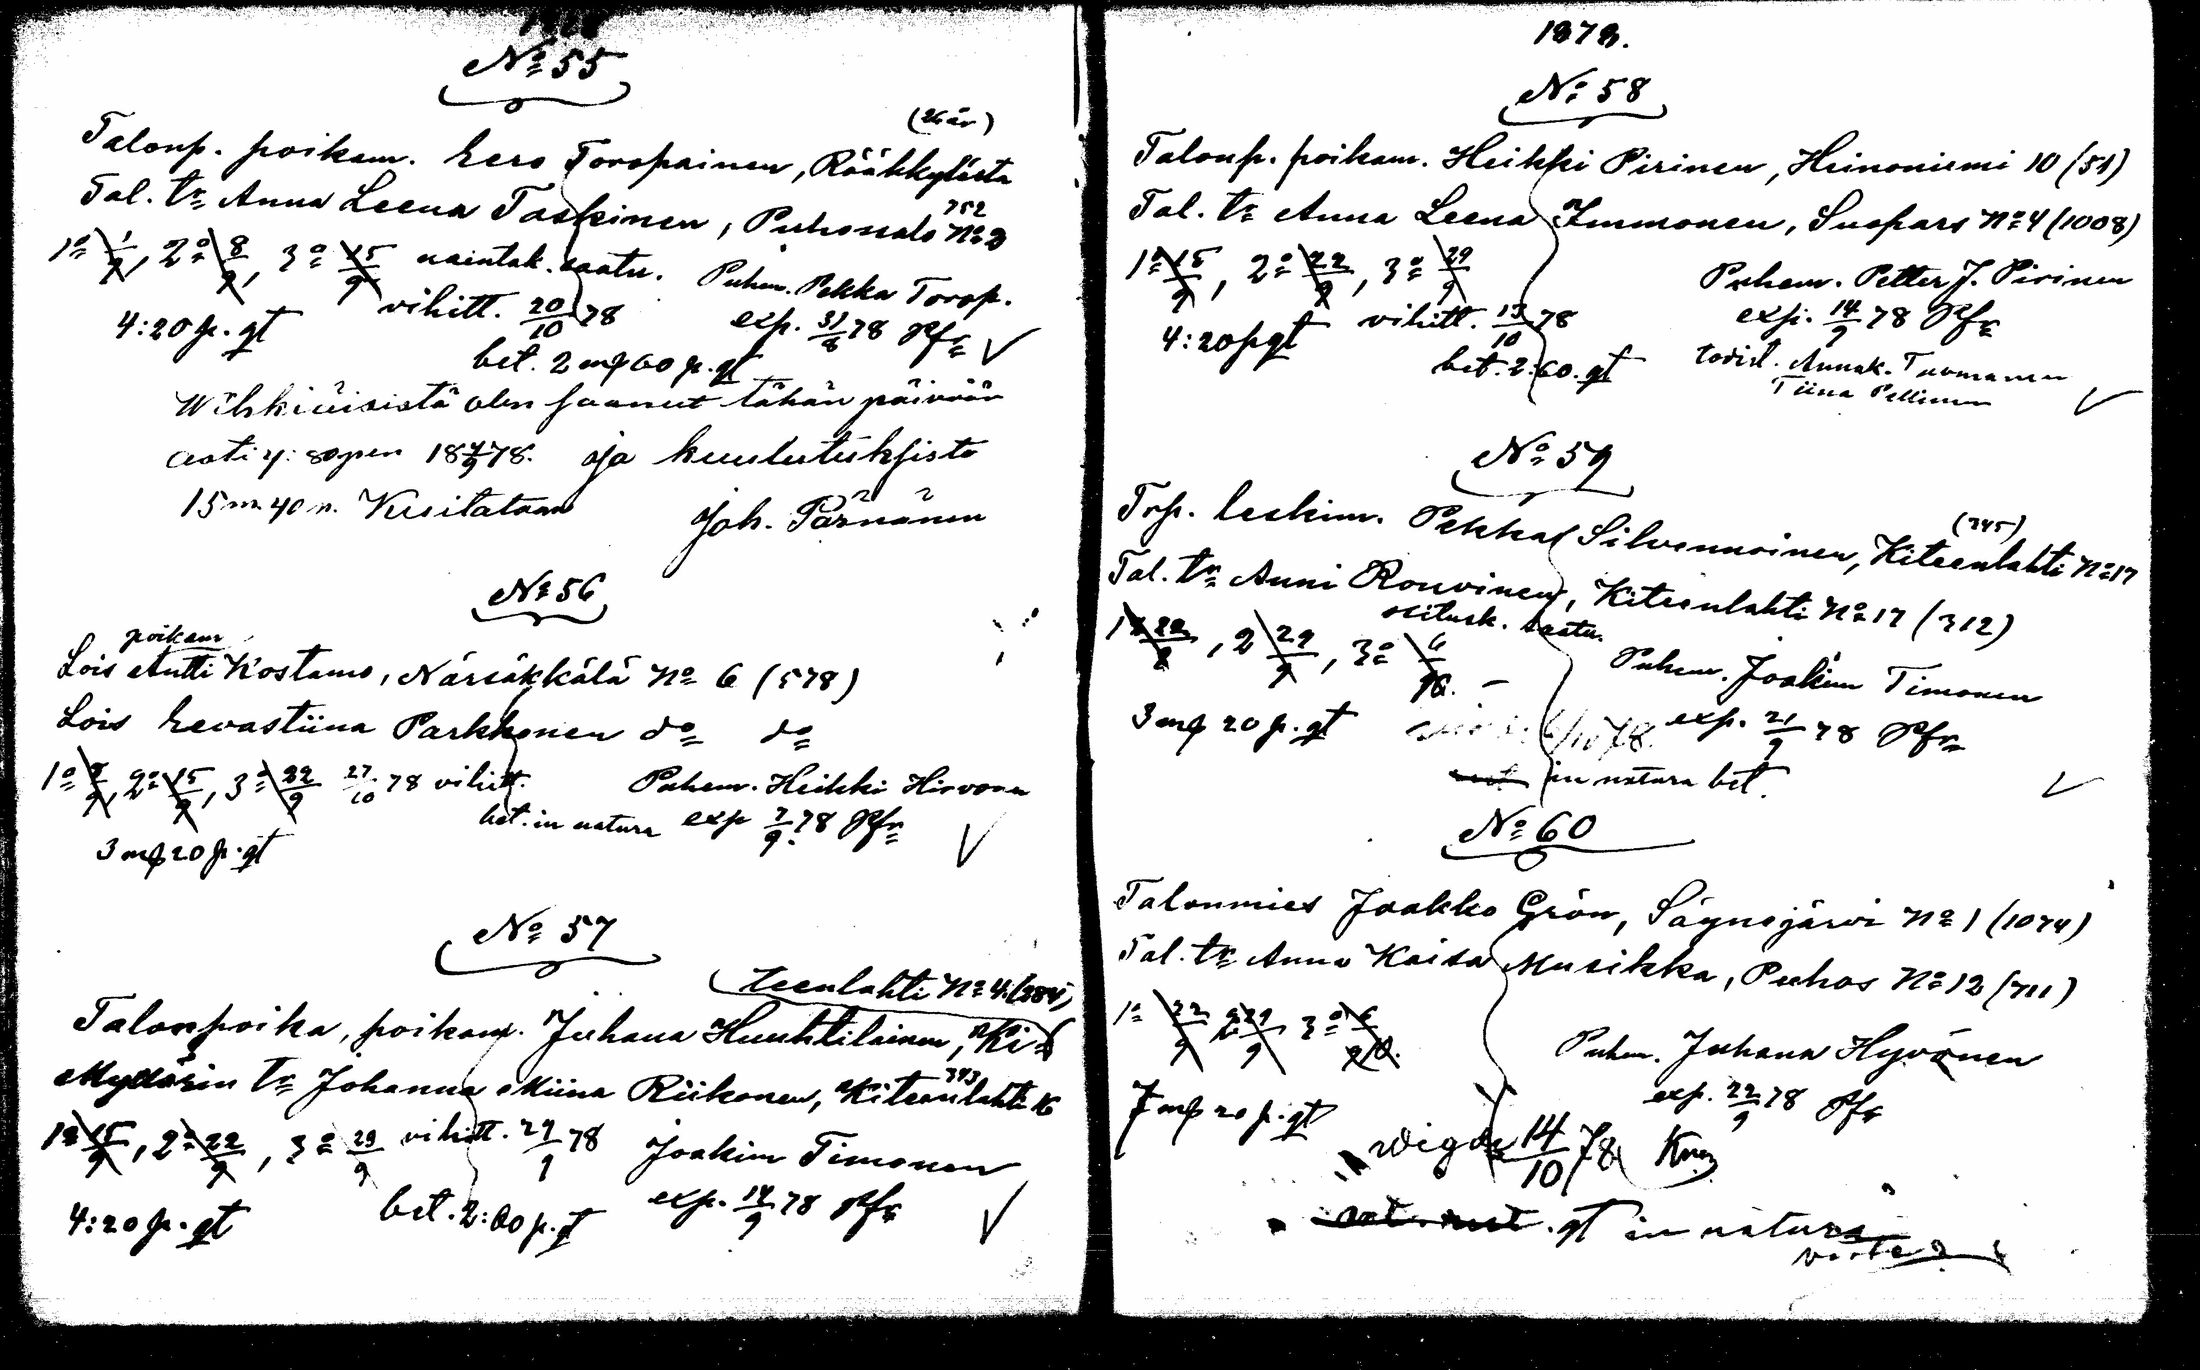 No 55
(26 år)
Talonp. poikam. Eero Toropainen, Rääkkylästä
752
Tal. tr Anna Leena Taskinen, Puhossalo No 2
1o 1/9, 2o 8/9, 3o 15/9 naintak. saatu. Puhem. Pekka Torop.
4:20 p. gt vihitt. 20/10 78 exp. 31/8 78 Pfr
bet. 2 mf 60 p. gt
Wihkiäisistä olen saanut tähän päivään
asti 4: 80 pen 18 7/9 78. ja kuulutuksista
15 m. 40 p. Kuitataan
Joh. Pärnänen
No 56
poikam
Lois Antti Kostamo, Närsäkkälä No 6 (578)
Lois Eevastiina Parkkonen do do
1o 8/9, 2o 15/9, 3o 22/9 27/10 78 vihitt. Puhem. Heikki Hirvonen
bet. in natura exp 7/9 78 Pfr
3 mf 20 p. gt
No 57
teenlahti No 4. (284)
Talonpoika, poikam. Juhana Huuhtilainen, Ki-
343
Myllärin tr Johanna Miina Riikonen, Kiteenlahti 16
1o 15/9, 2o 22/9, 3o 29/9 vihitt. 29/9 78 Joakim Timonen
4:20 p. gt bet. 2:60 p. gt exp. 14/9 78 Pfr
1878.
No 58
Talonp. poikam. Heikki Pirinen, Heinoniemi 10 (51)
Tal. tr Anna Leena Immonen, Suopars No 4 (1008)
1o 15/9, 2o 22/9, 3o 29/9 Puhem. Petter J. Pirinen
4:20 p gt vihitt. 13/10 78 exp. 14/9 78 Pfr
bet. 2:60. gt todist. Annak. Tuomanen
Tiina Pellinen
No 59
Trp. leskim. Pekka Silvennoinen, Kiteenlahti No 17
(345)
Tal. tr Anni Rouvinen, Kiteenlahti No 17 (312)
1o 22/9, 2 29/9, 3o 6/10. saatu. Puhem. Joakim Timonen
3 mf 20 p. gt exp. 21/9 78 Pfr
in natura bet.
No 60
Talonmies Jaakko Grön, Säynejärvi No 1 (1074)
Tal. tr Anna Kaisa Musikka, Puhos No 12 (711)
1o 22/9 2o 29/9 3o 6/10. Puhem. Juhana Hyvönen
7 mf 20 p. gt exp. 22/9 78 Pfr
Wigde 14/10 78
gt in natura